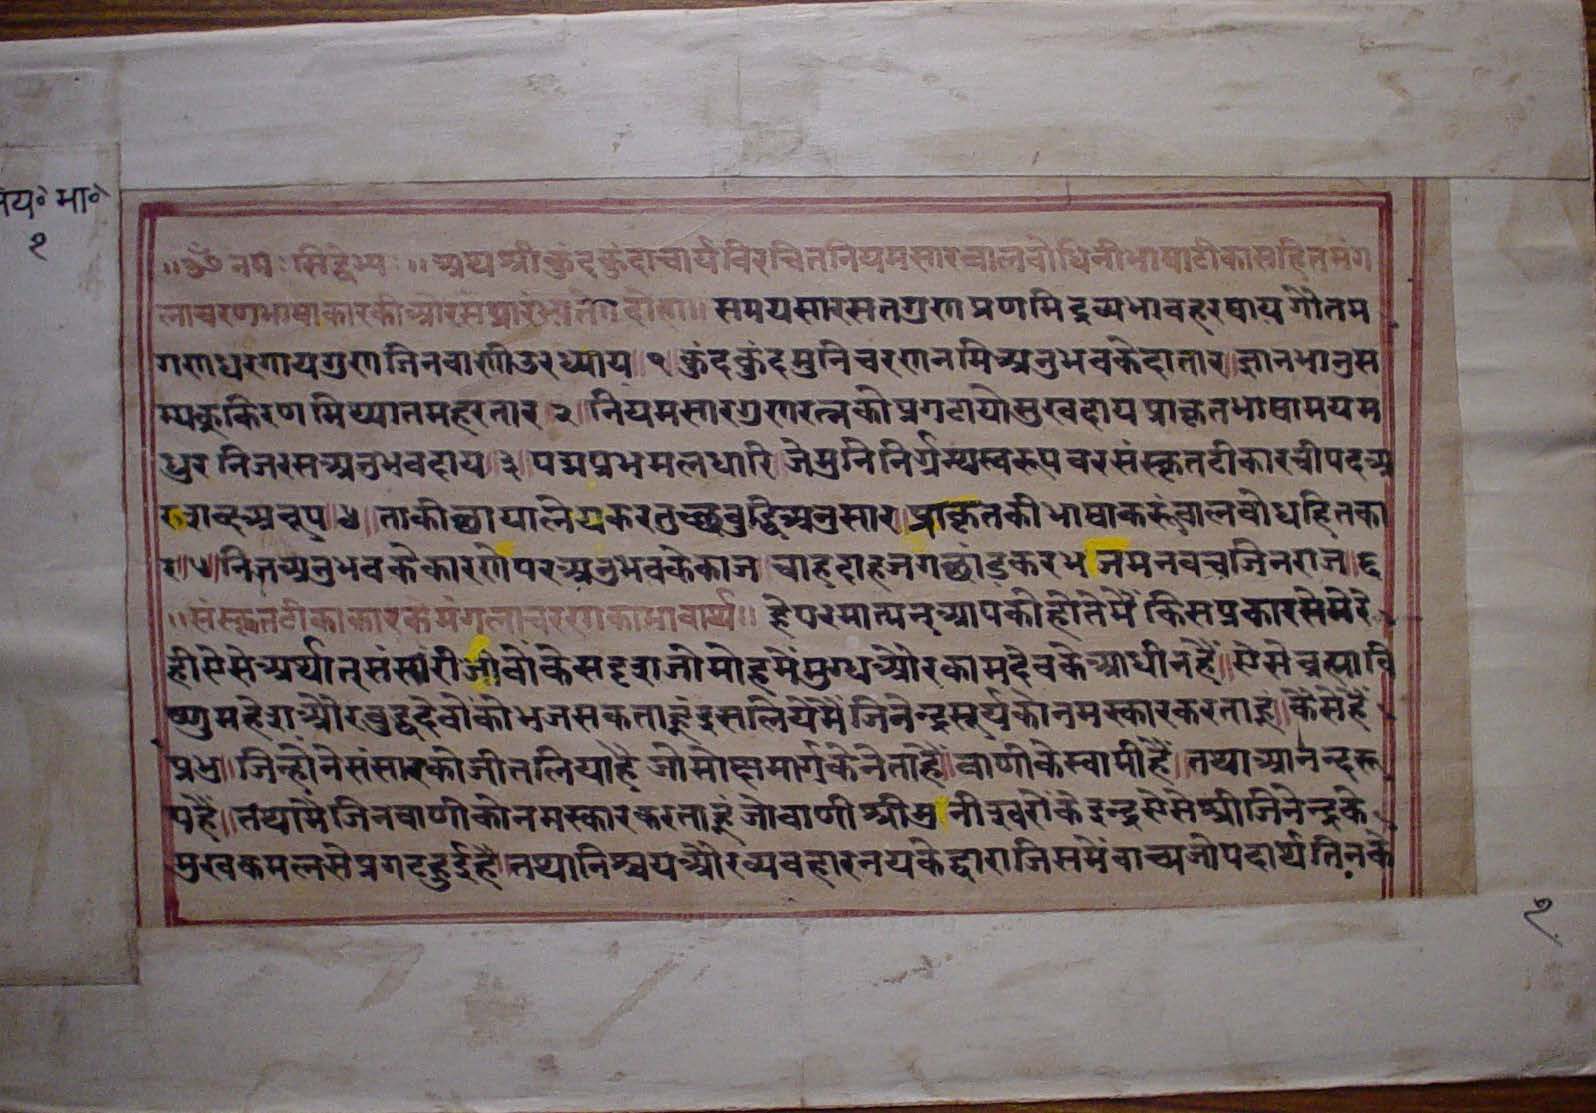 नियº भाº
१
॥ॐ नमः सिद्धेभ्यः॥ अथ श्री कुंदकुंदाचार्य विरचित नियमसार बालबोधिनी भाषाटीका सहित मंग
लाचरण भाषाकारकी ओरसे प्रारंभ्यते दोहा॥ समयसार सत गुरु प्रणमि द्रव्य भाव हरषाय गौतम
गणधर गाय गुण जिनवाणी उर ध्याय १ कुंदकुंद मुनि चरण नमि अनुभव के दातार ज्ञान भानु स
म्यक् किरण मिथ्यातम हरतार २ नियमसार गुणरत्नको प्रगटायो सुखदाय प्राकृत भाषामय म
धुर निजरस अनुभवदाय ३ पद्मप्रभमलधारि जे मुनि निर्ग्रन्थ स्वरूप वर संस्कृत टीका रची पद अ
रु शब्द अनूप ४ ताकी छाया लेयकर तुच्छ बुद्धि अनुसार प्राकृतकी भाषा करूं बालबोध हितका
र ५ निज अनुभव कै कारणे पर अनुभवके काज चाह दाह जग छांडकर भज मन वच जिनराज ६
॥संस्कृत टीकाकारके मंगलाचरणका भावार्थ॥ हे परमात्मन् आपके होते मैं किस प्रकारसे मेरे
ही ऐसे अर्थात् संसारी जीवोंके सदृश जो मोहमें मुग्ध और कामदेवके आधीन हैं॥ ऐसे ब्रह्मा वि
ष्णु महेश और बुद्ध देवोंको भज सकता हूं इसलिये मैं जिनेन्द्र सूर्यको नमस्कार करता हूं॥ कैसे हैं
प्रभु॥ जिन्होंने संसारको जीत लिया है जो मोक्षमार्गके नेता हैं॥ वाणीके स्वामी हैं॥ तथा आनन्दरू
प हैं॥ तथा मैं जिनवाणीको नमस्कार करता हूं जो वाणी श्री मुनीश्वरोंके इन्द्र ऐसे श्री जिनेन्द्रके
मुखकमलसे प्रगट हुई है॥ तथा निश्चय और व्यवहार नयके द्वारा जिसमें वाच्य जो पदार्थ तिनके
१